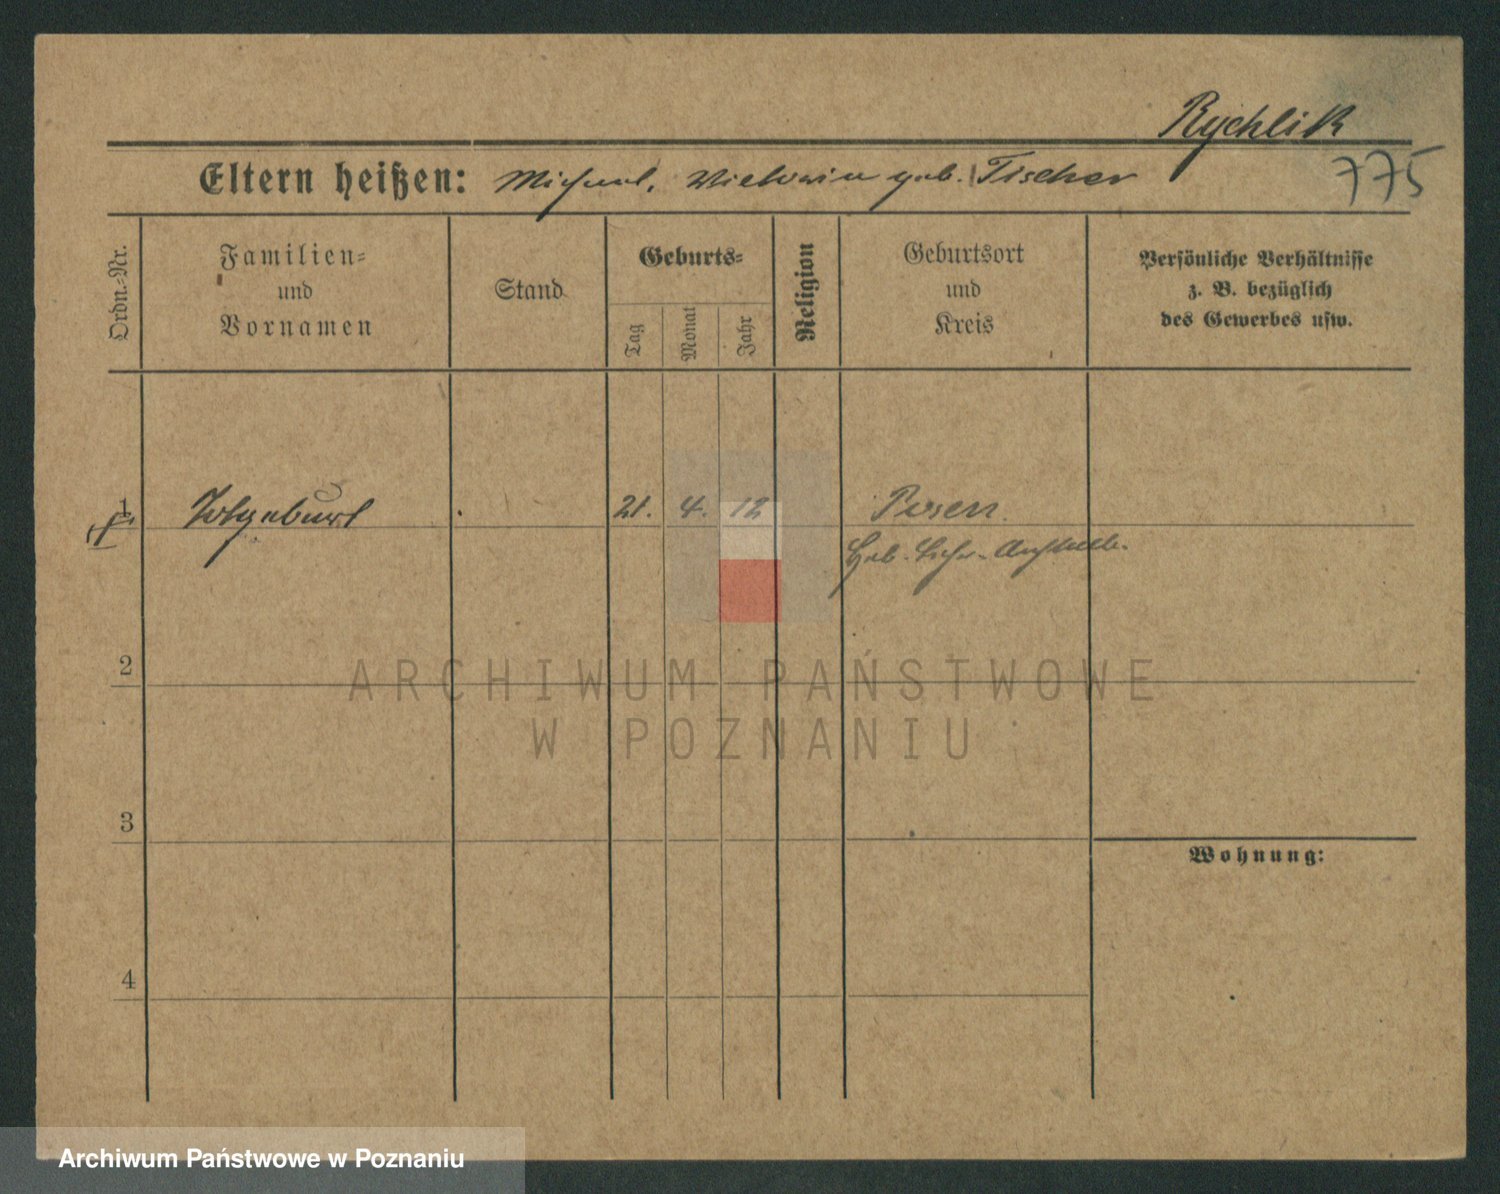 Rychlik
775
Eltern heißen: Michael, Viktoria geb. Tischer
Ordn.=Nr.
Familien=
und
Vornamen
Stand
Geburts=
Tag
Monat
Jahr
Religion
Geburtsort
und
Kreis
Persönliche Verhältnisse
z. B. bezüglich
des Gewerbes usw.
1 Totgeburt 21. 4. 12 Posen.
Heb. Lehr-Anstalt.
2
3
4
Wohnung:
ARCHIWUM PAŃSTWOWE
W POZNANIU
Archiwum Państwowe w Poznaniu